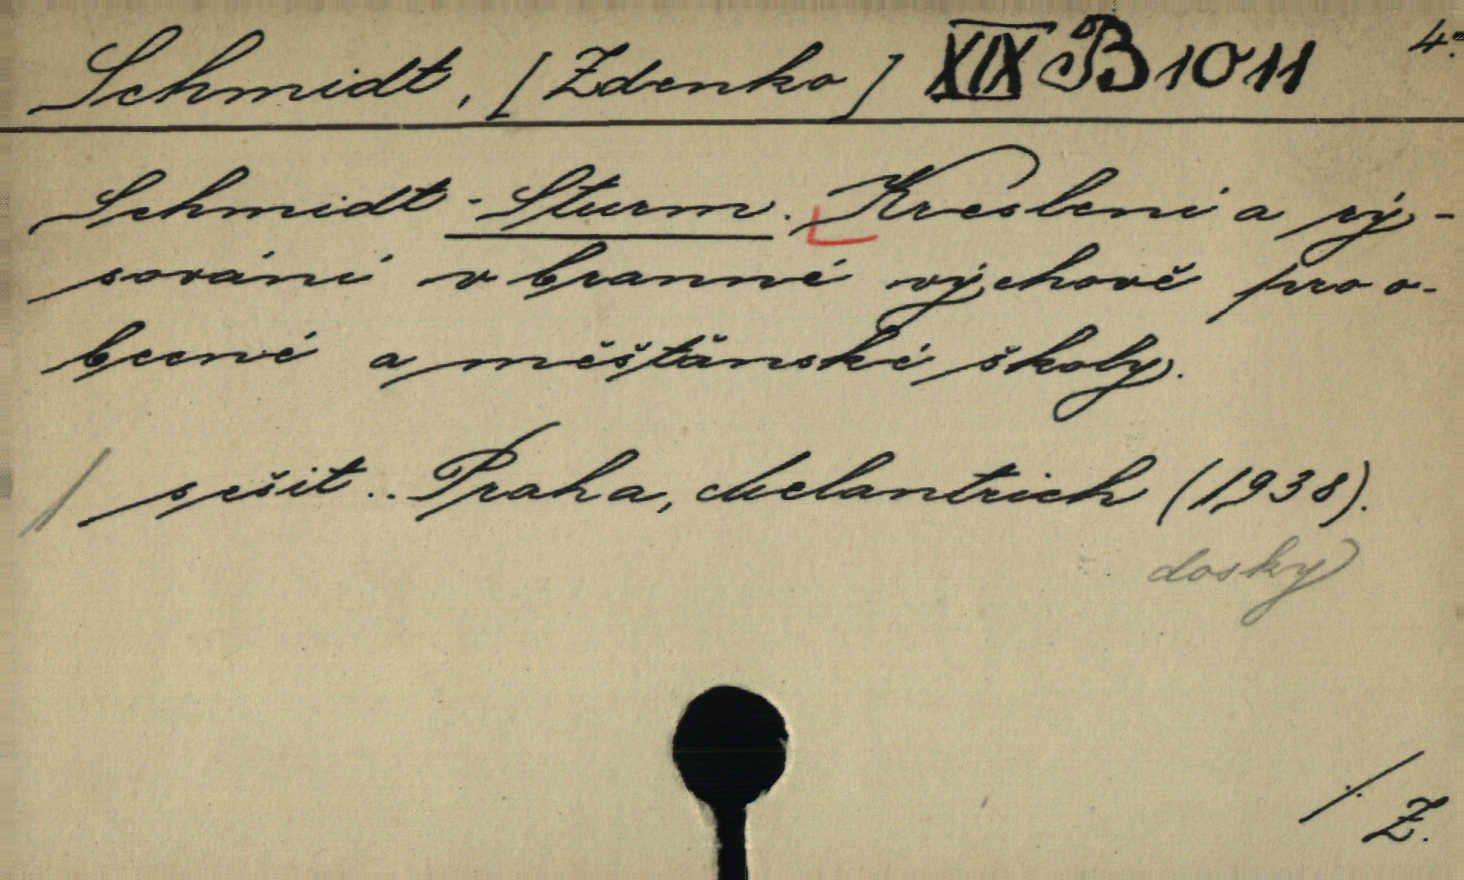 Schmidt, [Zdenko] XIX B 1011 4°
Schmidt-Sturm. Kreslení a rý-
sování v branné výchově pro o-
becné a měšťanské školy.
sešit.. Praha, Melantrich (1938).
dosky
/. Z.